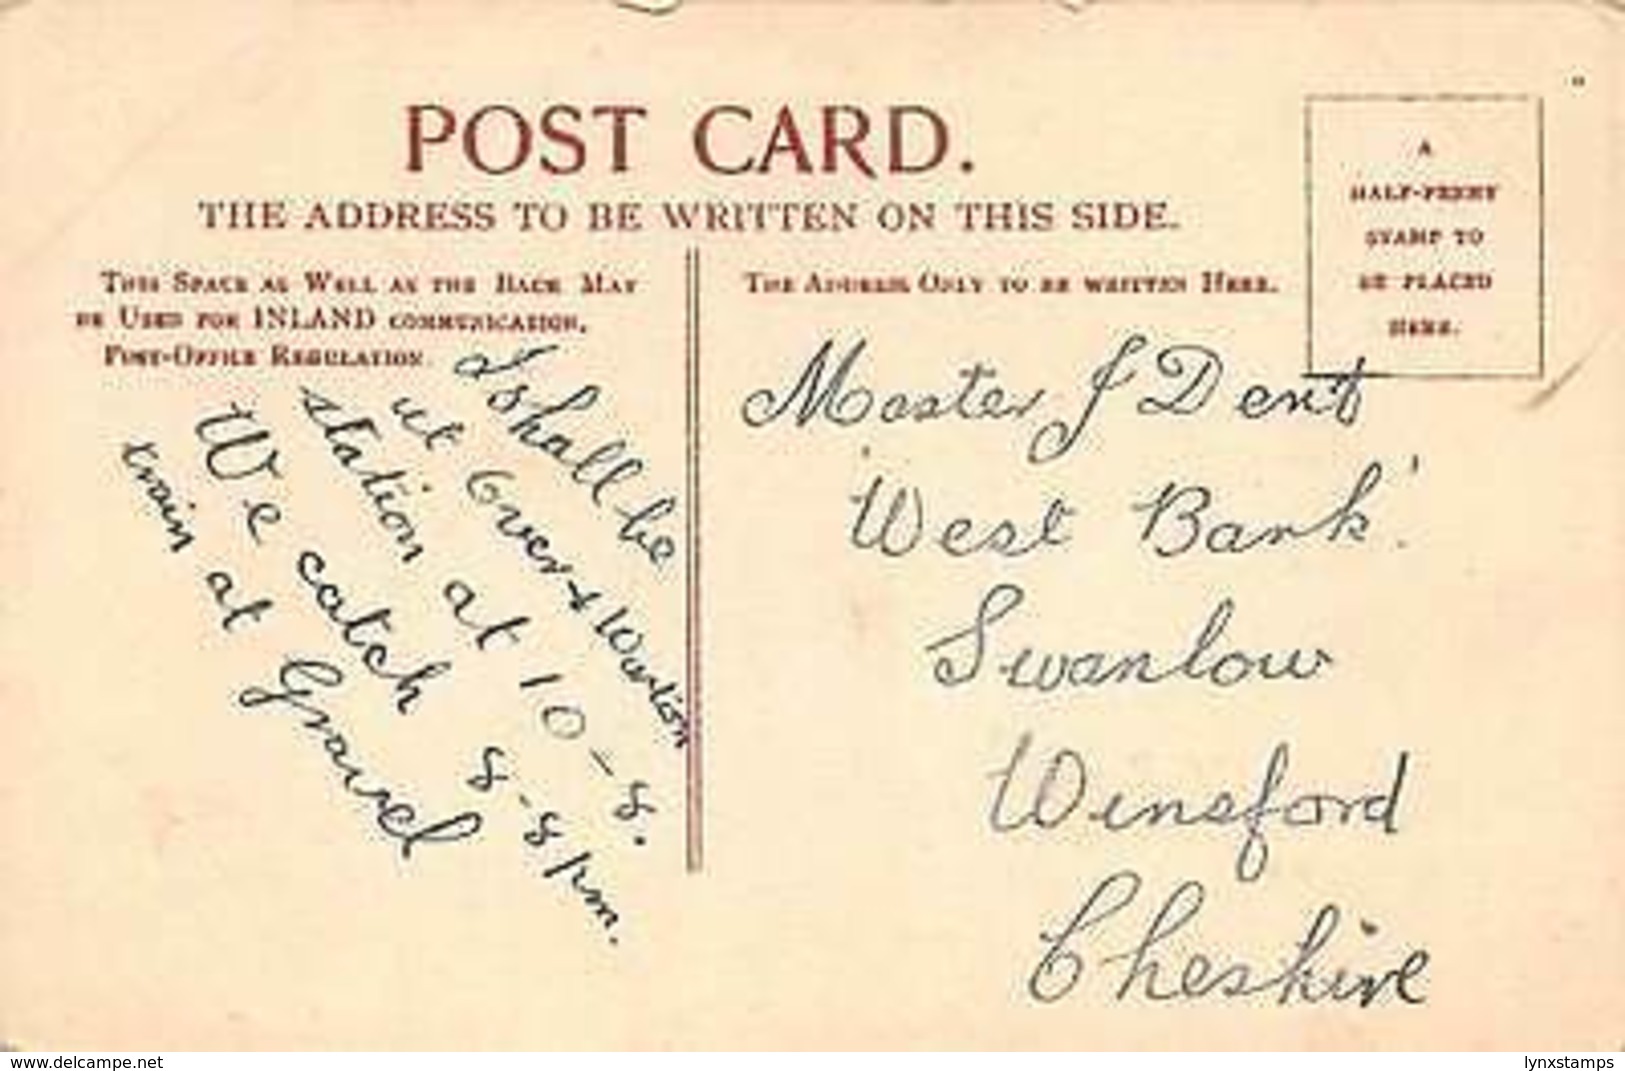 POST CARD.
THE ADDRESS TO BE WRITTEN ON THIS SIDE.
THIS SPACE AS WELL AS THE BACK MAY
BE USED FOR INLAND COMMUNICATION.
POST-OFFICE REGULATION
I shall be
at Over & Wharton
station at 10-8.
We catch 8-8 pm.
train at Gravel
THE ADDRESS ONLY TO BE WRITTEN HERE.
A
HALF-PENNY
STAMP TO
BE PLACED
HERE.
Master J Dent
'West Bank'
Swanlow
Winsford
Cheshire
www.delcampe.net
lynxstamps